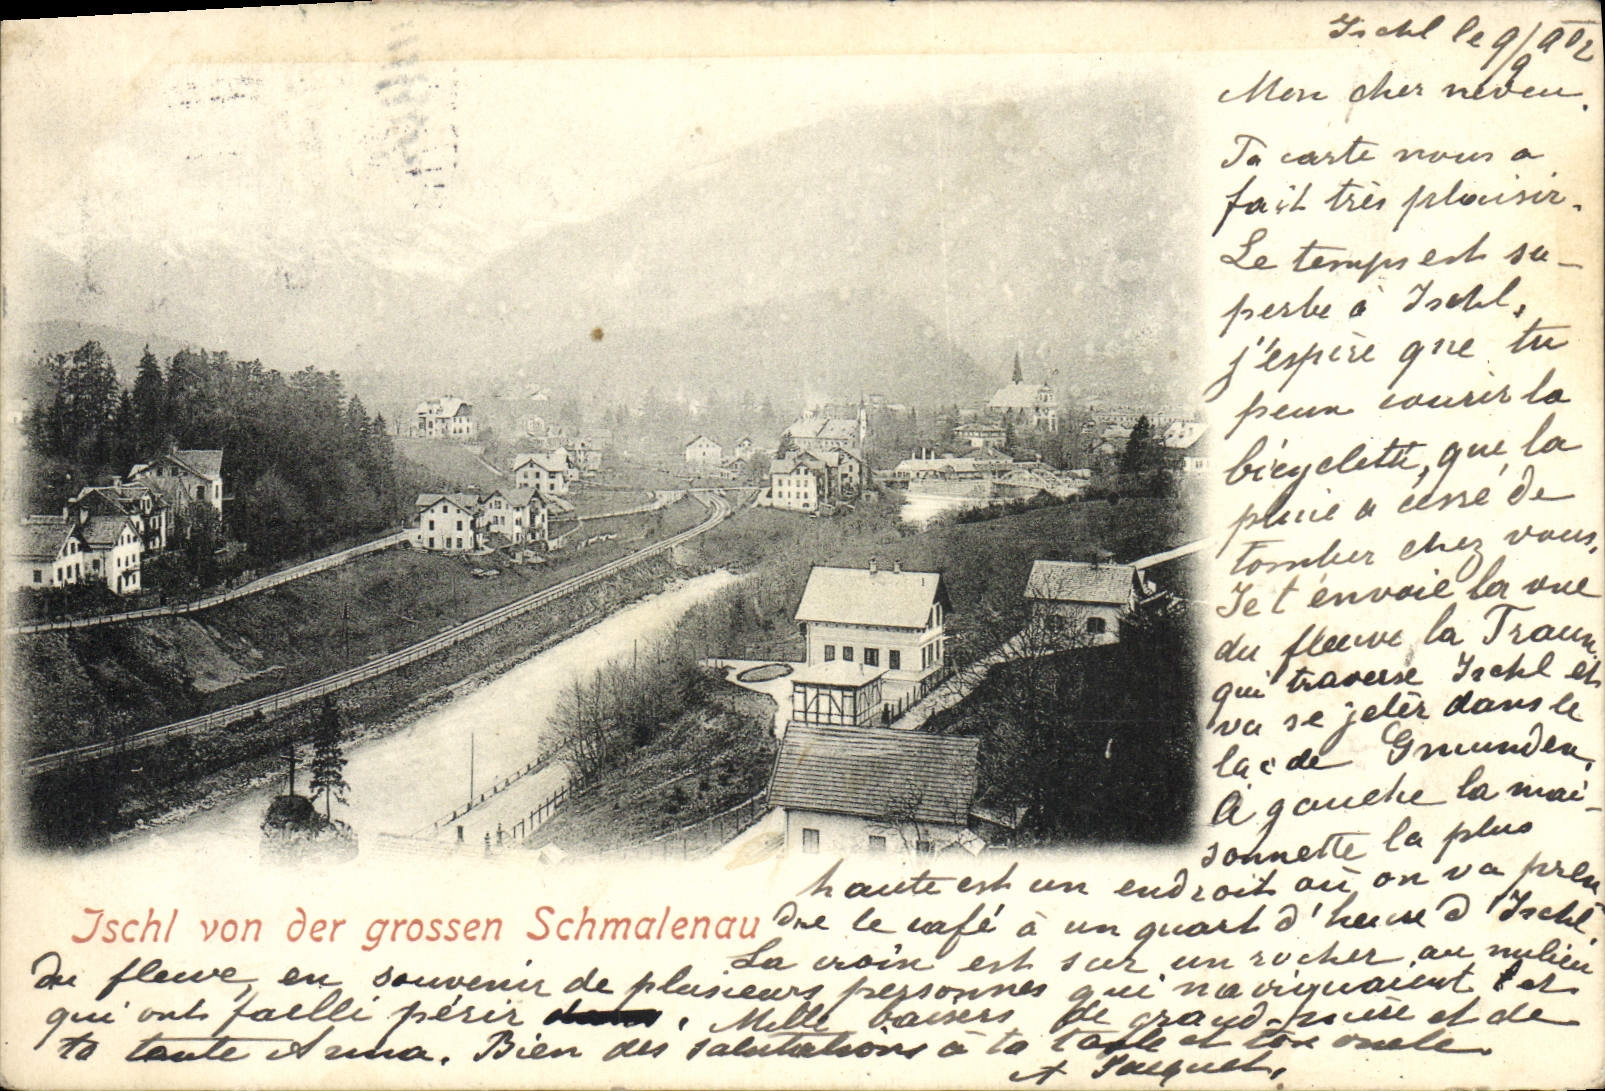 Ischl le 9/9 02
Mon cher neveu.
Ta carte nous a
fait très plaisir.
Le temps est su-
perbe à Ischl,
j'espère que tu
peux courir la
bicyclette, que la
pluie a cessé de
tomber chez vous.
Je t'envoie la vue
du fleuve la Traun,
qui traverse Ischl et
va se jeter dans le
lac de Gmunden.
A gauche la mai-
sonnette la plus
haute est un endroit où on va pren
dre le café à un quart d'heure d'Ischl
La croix est sur un rocher au milieu
du fleuve, en souvenir de plusieurs personnes qui naviguaient et
qui ont failli périr. Mille baisers de grand-mère et de
ta tante Anna. Bien des salutations à ta tante et ton oncle.
Jacquet.
Ischl von der grossen Schmalenau